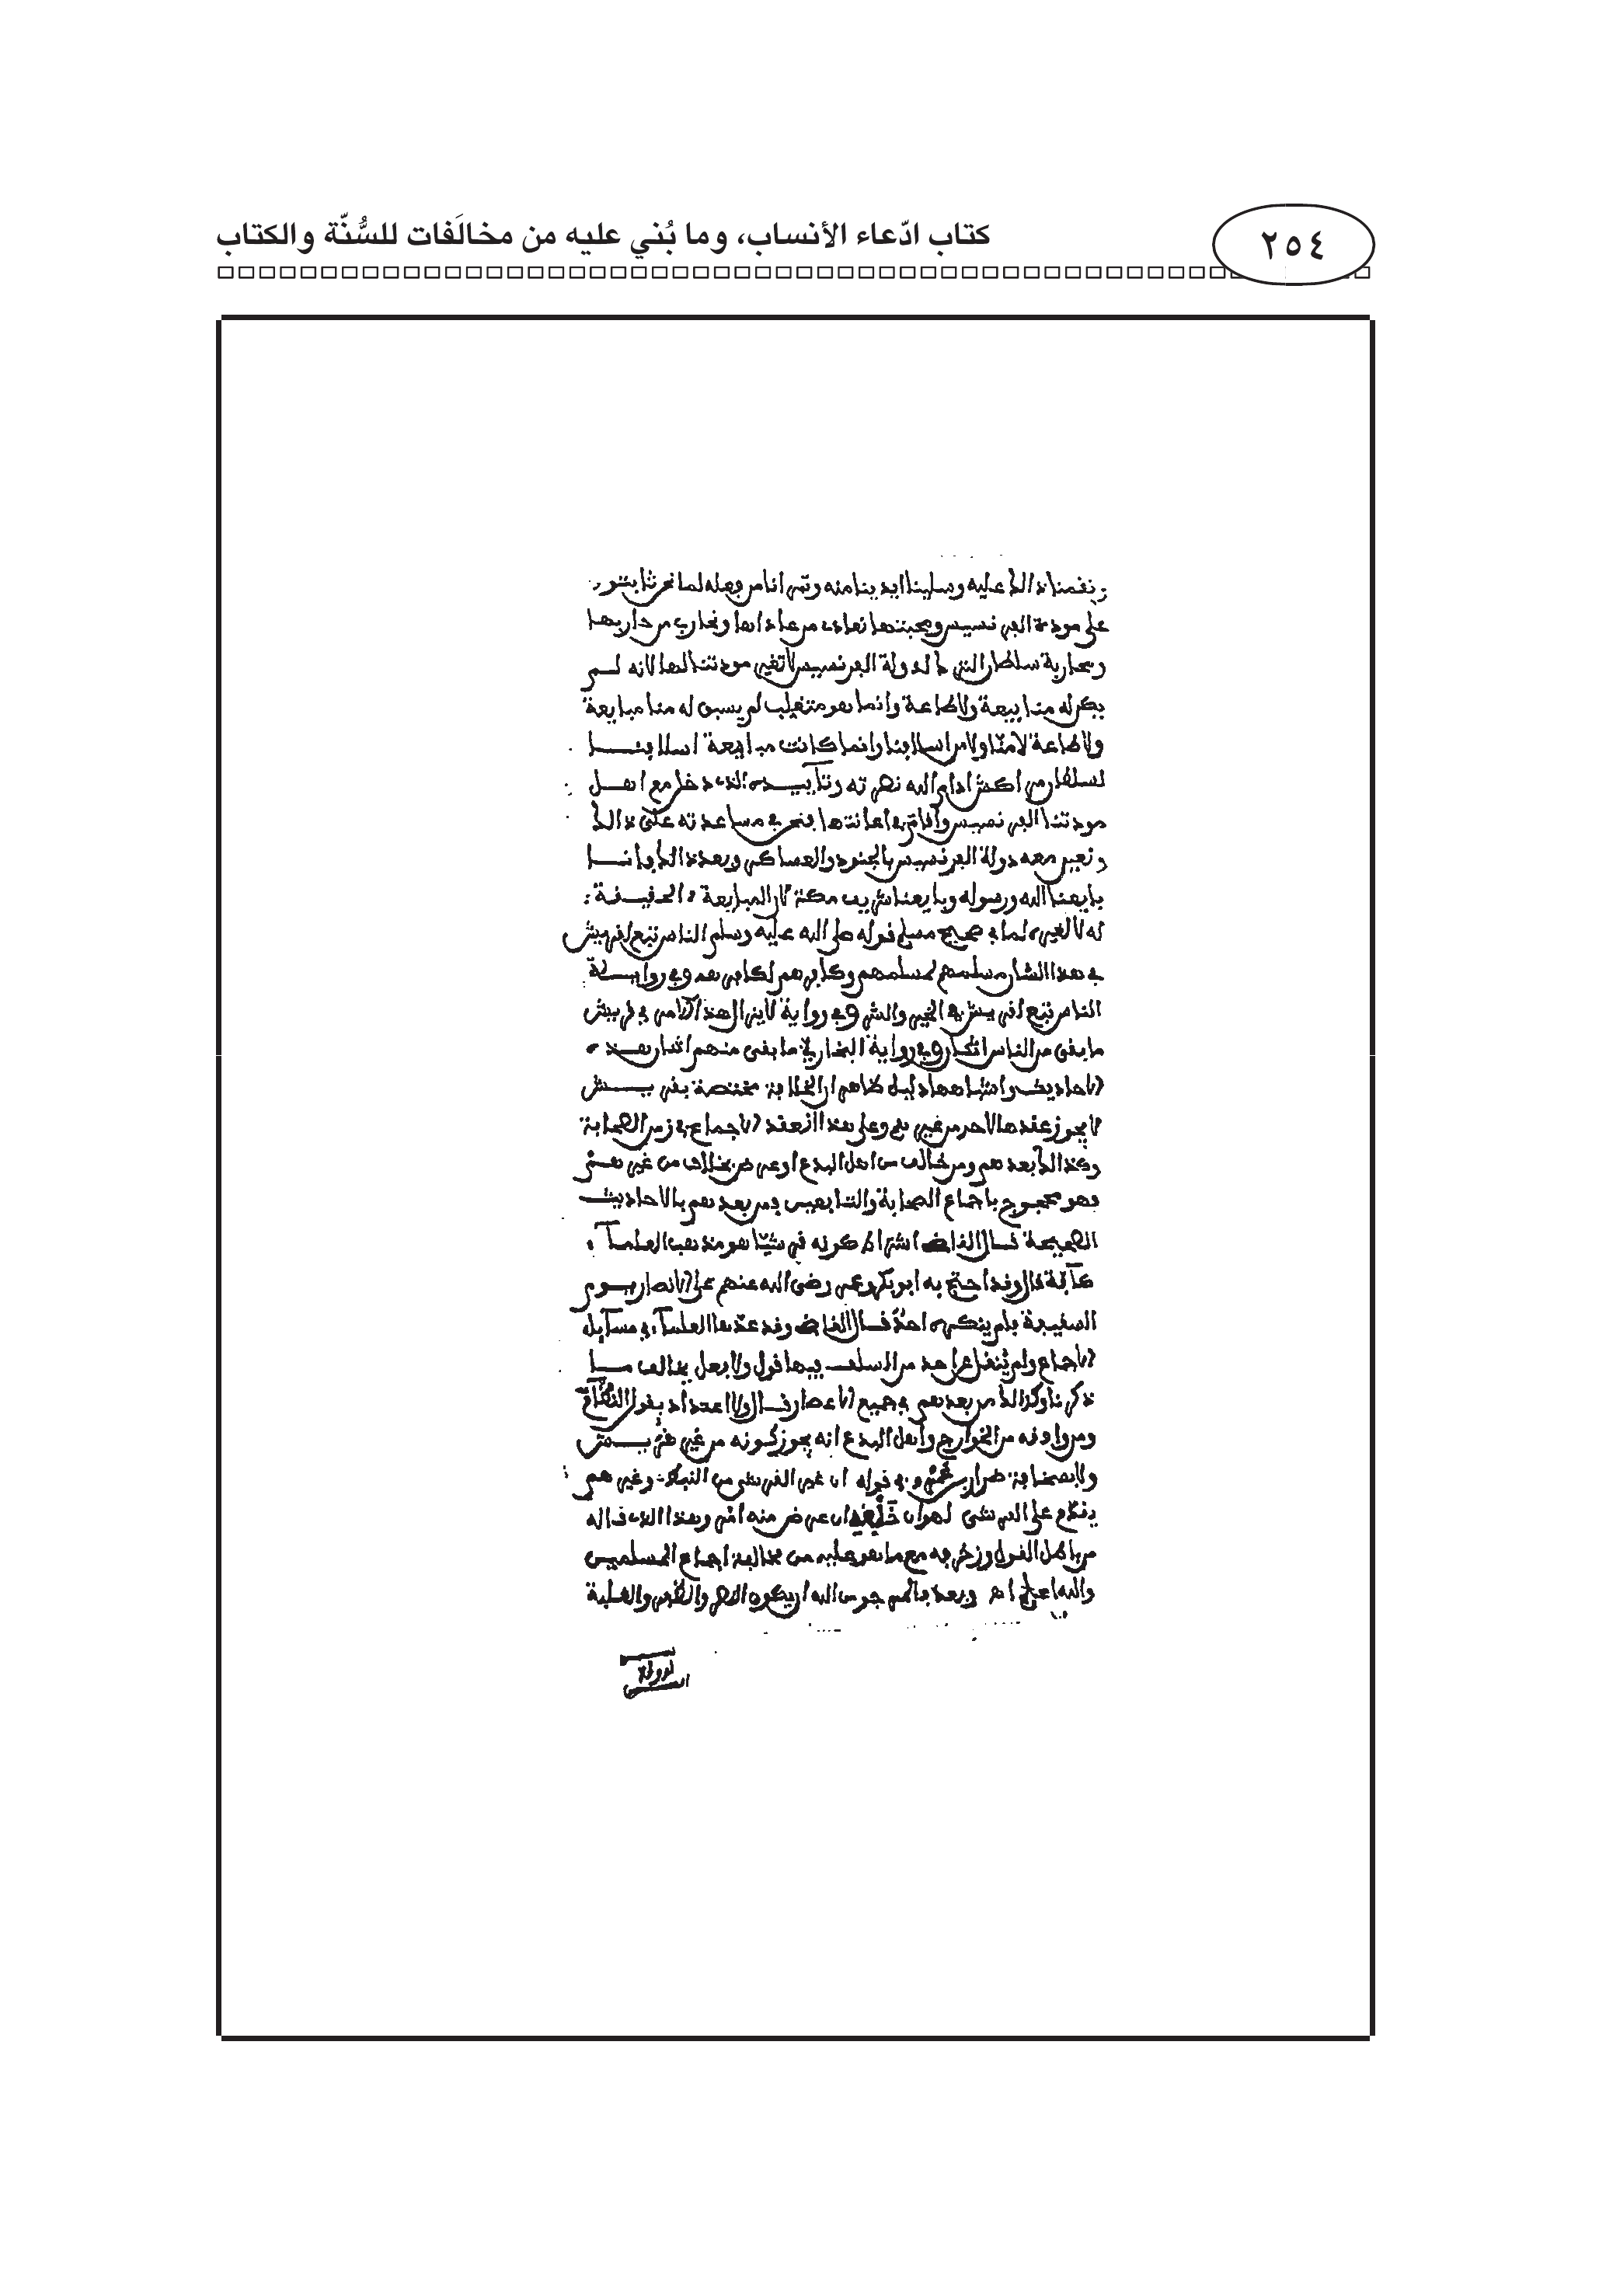 ٢٥٤
كتاب ادّعاء الأنساب، وما بُني عليه من مخالَفات للسُّنّة والكتاب
ونقمنا ذالك عليه وسلبنا ايدينا منه وتبرانا من فعله لما نحن ثابتون
على مودة الفرنسيس ومحبتها نعادى من عاداها ونحارب من حاربها
ومحاربة سلطان الترك لدولة الفرنسيس لا تغير مودتنا لها لانه لم
يكن له منا بيعة ولا طاعة وانما هو متغلب لم يسبق له منا مبايعة
ولا طاعة لا منا ولا من اسلابنا وانما كانت مبايعة اسلابنا
لسلطان من اكش ادام الله نصرته وتاييده الذى دخل مع اهل
مودتنا الفرنسيس وافام فى اعانتها فنحن فى مساعدته على ذالك
ونعين معه دولة الفرنسيس بالجنود والعساكر وبعد ذالك فاننا
بايعنا الله ورسوله وبايعنا شريف مكة لان المبايعة الحقيقة
له لا لغيره لما فى صحيح مسلم قوله صلى الله عليه وسلم الناس تبع لقريش
فى هذا الشان مسلمهم لمسلمهم وكافرهم لكافرهم وفى رواية
الناس تبع لقريش فى الخير والشر وفى رواية لا يزال هذا الامر فى قريش
ما بقى من الناس اثنان وفى رواية البخارى ما بقى منهم اثنان هذه
الاحاديث واشباهها دليل ظاهر ان الخلافة مختصة بقريش
لا يجوز عقدها لاحد من غيرهم وعلى هذا انعقد الاجماع فى زمن الصحابة
وكذالك بعدهم ومن خالف من اهل البدع او عرض بخلاف من غيرهم
فهو محجوج باجماع الصحابة والتابعين فمن بعدهم بالاحاديث
الصحيحة قال القاضى اشتراط كونه قرشيا هو مذهب العلماء
كآفة قال وقد احتج به ابو بكر وعمر رضى الله عنهم على الانصار يوم
السقيفة فلم ينكره احد قال القاضى وقد عدها العلماء فى مسايل
الاجماع ولم ينقل عن احد من السلف فيها قول ولا فعل يخالف ما
ذكرنا وكذالك من بعدهم فى جميع الاعصار قال ولا اعتداد بقول النظام
ومن وافقه من الخوارج واهل البدع انه يجوز كونه من غير قريش
ولا بسخافة ضرار بن عمرو فى قوله ان غير القرشى من النبط وغيرهم
يقدم على القرشى لهوان خلعه ان عرض منه امر وهذا الذى قاله
من باطل القول وزخرفه مع ما هو عليه من مخالفة اجماع المسلمين
والله اعلم اه وبعد فالمرجو من الله ان يكون النصر والظفر والغلبة
لدولة